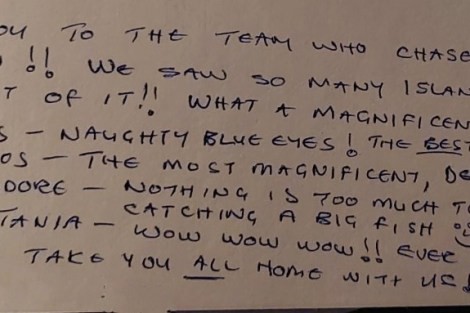 OU TO THE TEAM WHO CHASE
!! WE SAW SO MANY ISLAN
T OF IT!! WHAT A MAGNIFICEN
S - NAUGHTY BLUE EYES! THE BEST
OS - THE MOST MAGNIFICENT, DE
DORE - NOTHING IS TOO MUCH TO
CATCHING A BIG FISH
TANIA - WOW WOW WOW!! EVER
TAKE YOU ALL HOME WITH US!